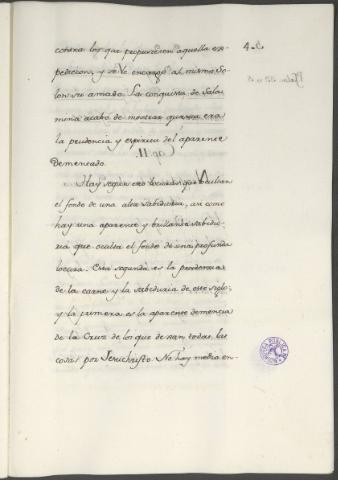 contra los que propusiesen aquella ex-
pedicion, y se le encargó al mismo So-
lon su armada. La conquista de Sala-
mina acabó de mostrar quanta era
la prudencia y espiritu del aparente
demenciado.
Cap. 11.
Hay segun eso locuras que ocultan
el fondo de una alta sabiduria, asi como
hay una aparente y brillante sabidu-
ria que oculta el fondo de una profunda
locura. Esta segunda es la prudencia
de la carne y la sabiduria de este siglo,
y la primera es la aparente demencia
de la Cruz de los que dexan todas las
cosas por Jesuchristo. No hay medio en-